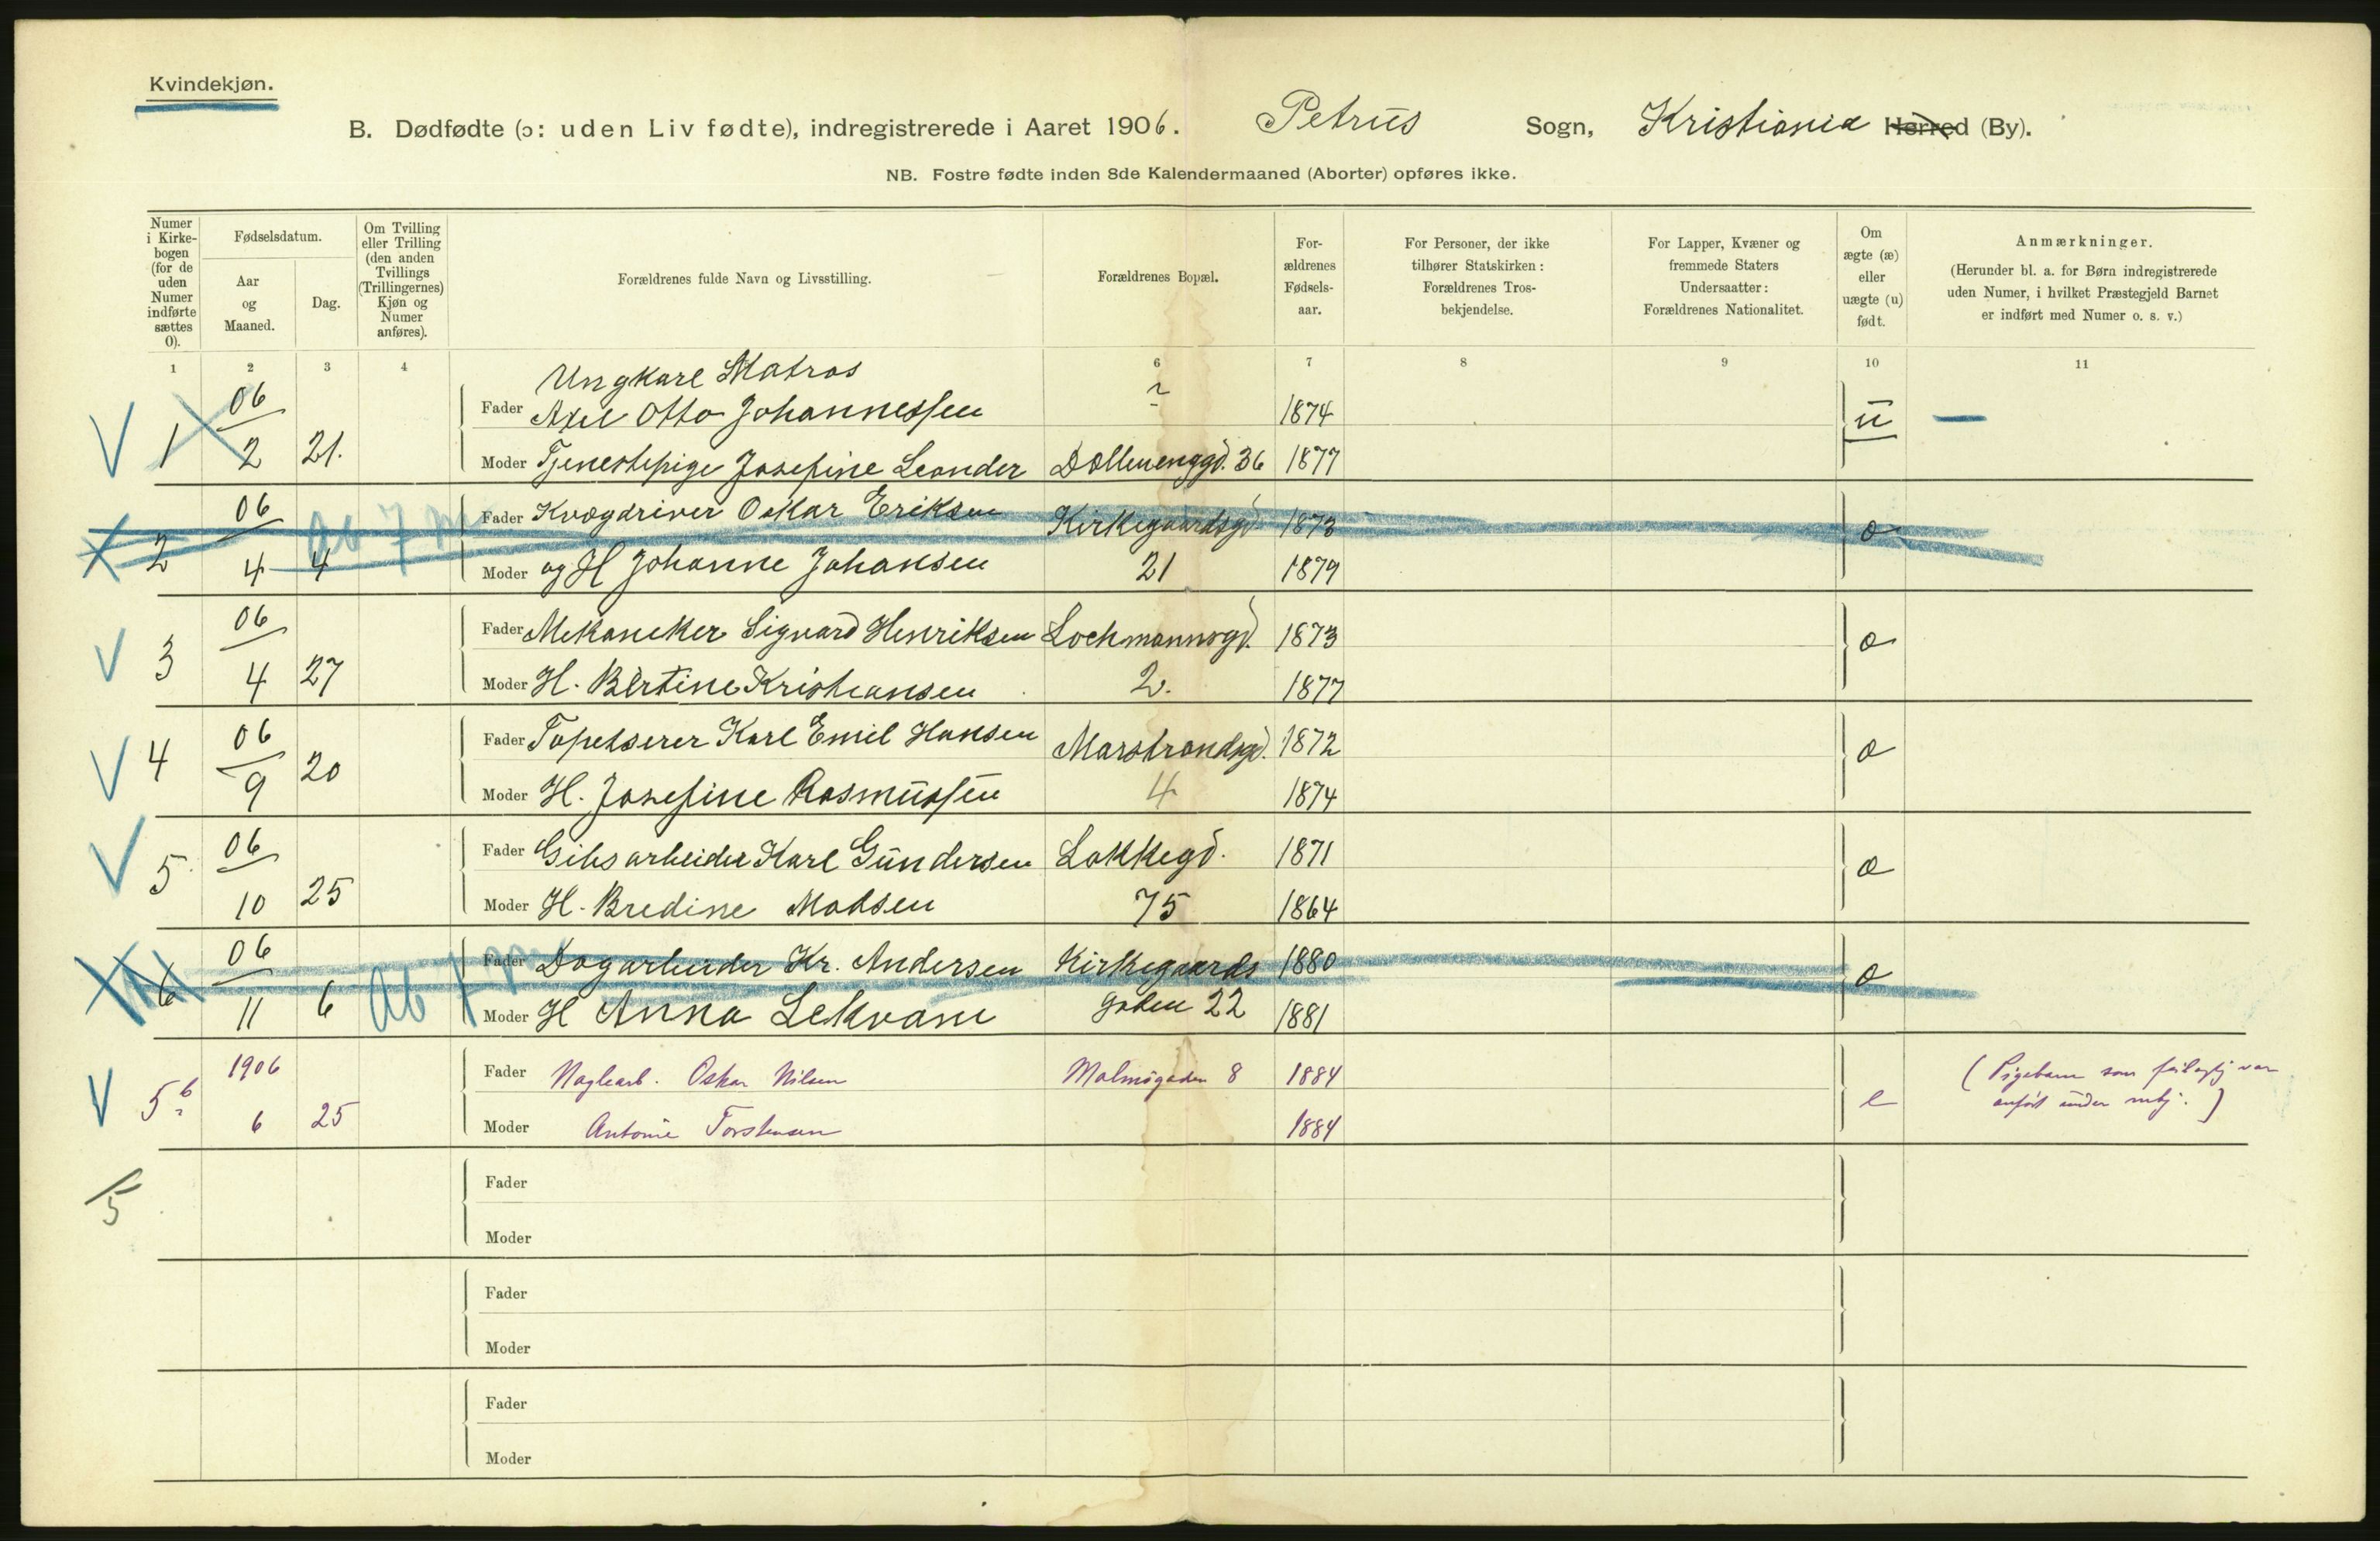 Kvindekjøn.
B. Dødfødte (ɔ: uden Liv fødte), indregistrerede i Aaret 1906. Petrus Sogn, Kristiania Herred (By).
NB. Fostre fødte inden 8de Kalendermaaned (Aborter) opføres ikke.
Numer i Kirkebogen (for de uden Numer indførte sættes 0).
Fødselsdatum.
Aar og Maaned.
Dag.
Om Tvilling eller Trilling (den anden Tvillings (Trillingernes) Kjøn og Numer anføres).
Forældrenes fulde Navn og Livsstilling.
Forældrenes Bopæl.
Forældrenes Fødselsaar.
For Personer, der ikke tilhører Statskirken: Forældrenes Trosbekjendelse.
For Lapper, Kvæner og fremmede Staters Undersaatter: Forældrenes Nationalitet.
Om ægte (æ) eller uægte (u) født.
Anmærkninger.
(Herunder bl. a. for Børn indregistrerede uden Numer, i hvilket Præstegjeld Barnet er indført med Numer o. s. v.)
1 2 3 4 6 7 8 9 10 11
Ungkarl Matros
06 Fader Axel Otto Johannessen ? 1874 u —
1 2 21. Moder Tjenestepige Josefine Leander Dælenenggd. 36 1877
06 Fader Kvægdriver Oskar Eriksen Kirkegaardsgd 1873 æ
2 4 4 Ab 7 m Moder og H Johanne Johansen 21 1879
06 Fader Mekaniker Sigvard Henriksen Lochmannsgd. 1873 æ
3 4 27 Moder H. Bertine Kristiansen 2. 1877
06 Fader Tapetserer Karl Emil Hansen Marstrandsgd. 1872 æ
4 9 20 Moder H. Josefine Rasmussen 4 1874
06 Fader Gibsarbeider Karl Gundersen Løkkegd. 1871 æ
5 10 25 Moder H. Bredine Madsen 75 1864
06 Fader Dagarbeider Kr. Andersen Kirkegaards 1880 æ
6 11 6 Ab Moder H Anna Lekvam gaden 22 1881
1906 Fader Naglearb. Oskar Nilsen Malmøgaden 8 1884 e (Pigebarn som feilagtig var
5b 6 25 Moder Antonie Torstensen 1884 anført under mkj.)
5
Fader
Moder
Fader
Moder
Fader
Moder